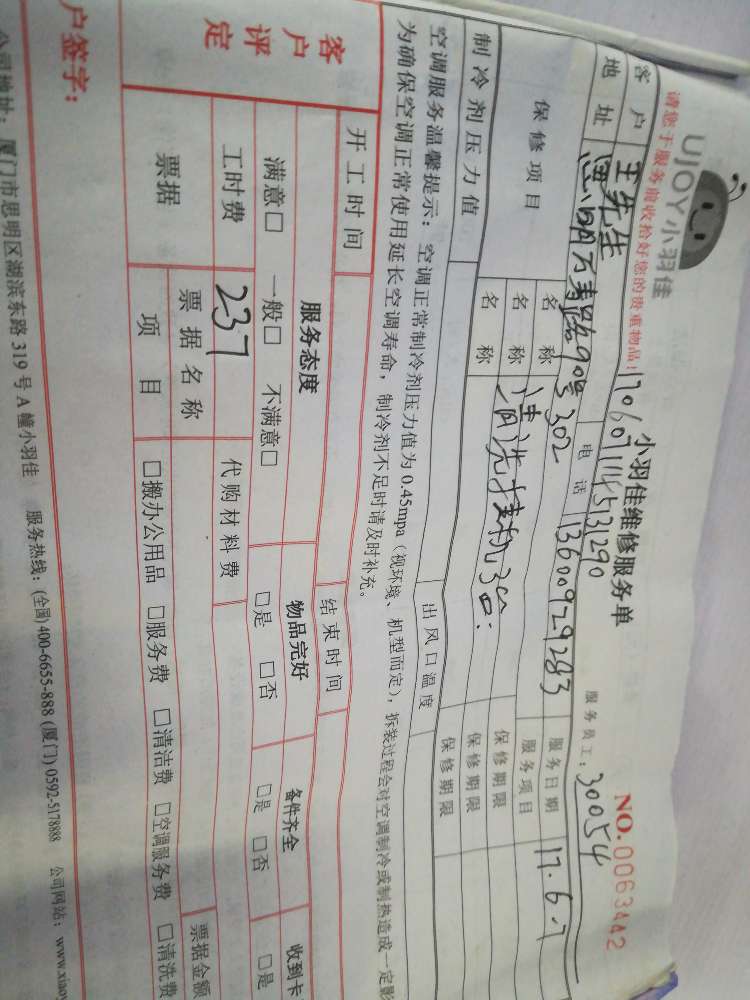 UJOY小羽佳
小羽佳维修服务单
NO.0063442
请您于服务前收拾好您的贵重物品!
服务员工: 30054
客户 王先生 电话 13600929283 服务日期 17.6.7
地址 万寿路90号302 服务项目
保修项目 名称 清洗挂机3台. 保修期限
名称 保修期限
制冷剂压力值 出风口温度 保修期限
空调服务温馨提示: 空调正常制冷剂压力值为0.45mpa(视环境、机型而定), 拆装过程会对空调制冷或制热造成一定影
为确保空调正常使用延长空调寿命, 制冷剂不足时请及时补充。
开工时间 结束时间
客户评定 服务态度 物品完好 备件齐全 收到卡
满意□ 一般□ 不满意□ □是 □否 □是 □否 □是
工时费 237 代购材料费
票据 票据名称 票据金额
项目 □搬办公用品 □服务费 □清洁费 □空调服务费 □清洗费
户签字:
公司地址: 厦门市思明区湖滨东路319号A幢小羽佳 服务热线: (全国)400-6655-888 (厦门)0592-5178888 公司网站: www.xiaoy